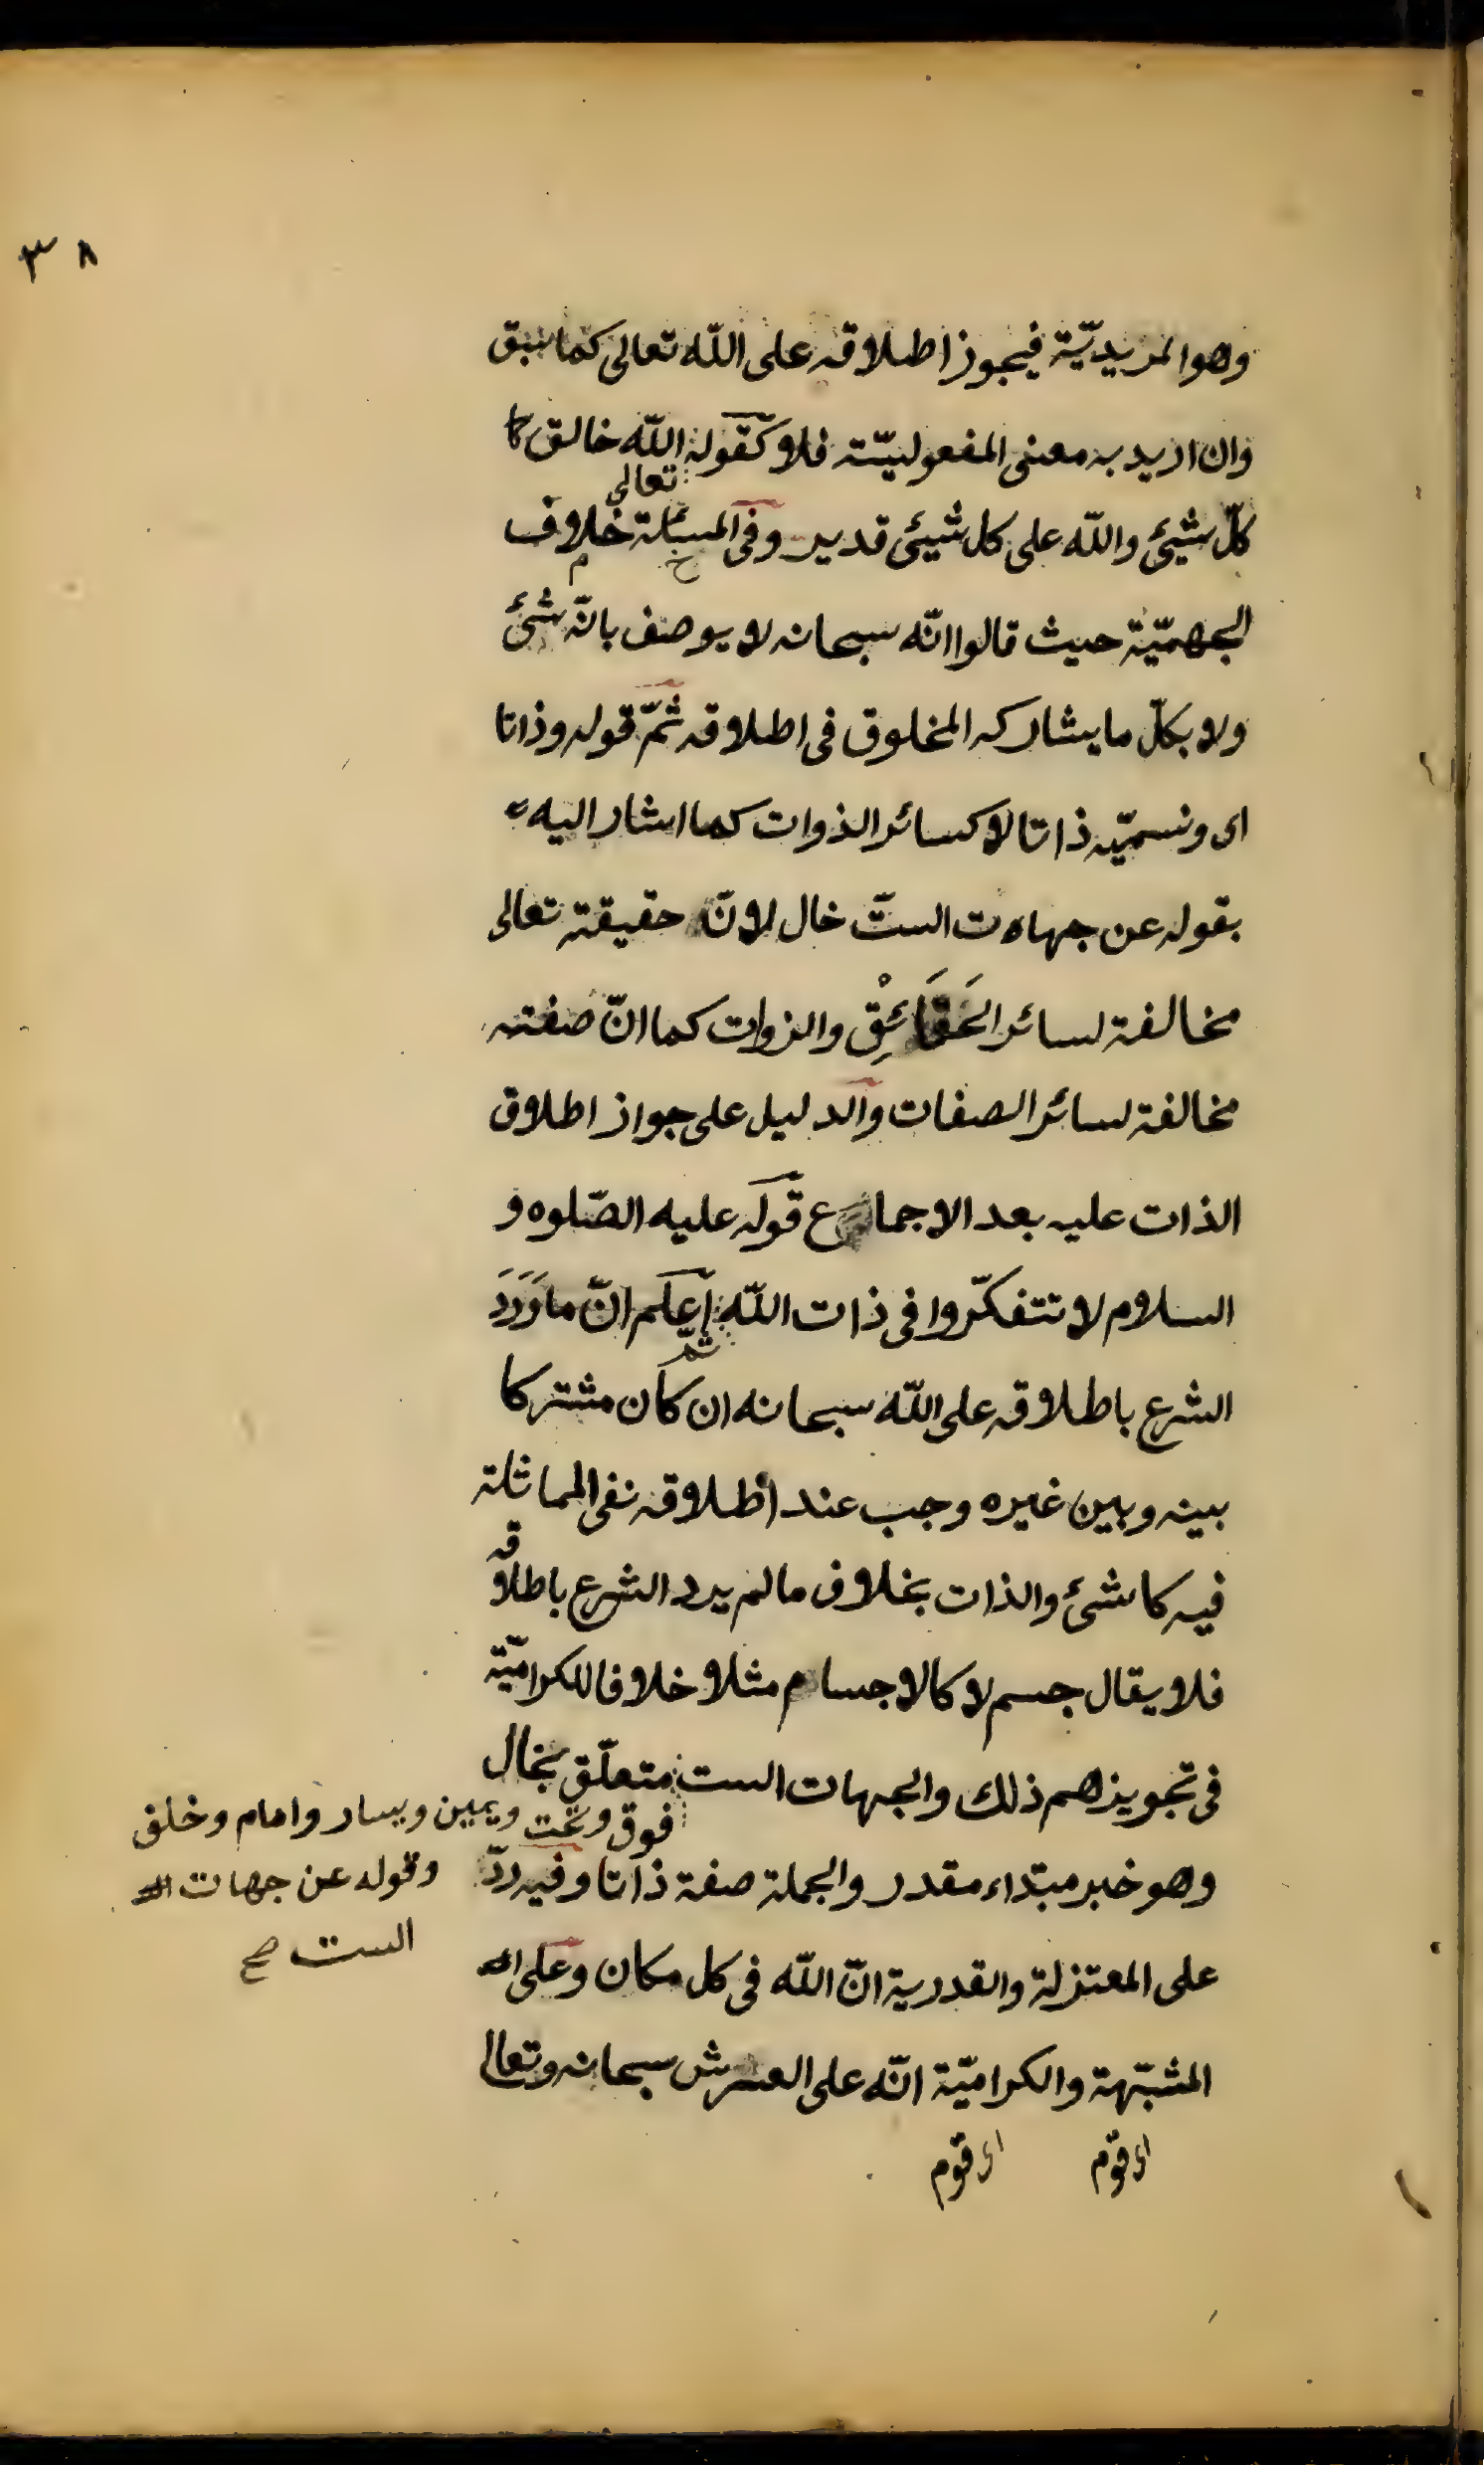 ٣٨
وهو المريديّة فيجوز اطلاقه على اللّه تعالى كما سبق
وان اريد به معنى المفعوليّة فلا كقوله اللّه خالق كا
تعالى
كلّ شيئ واللّه على كل شيئ قدير وفى المسئلة خلاف
الجهميّة حيث قالوا انّه سبحانه لا يوصف بانّه شئ
ولا بكلّ ما يشاركه المخلوق فى اطلاقه ثمّ قوله وذاتا
اى ونسميّه ذاتا لا كسائر الذوات كما اشار اليه
بقوله عن جهاه ت الستّ خال لانّ حقيقته تعالى
مخالفة لسائر الحَقَائِقْ والزوات كما انّ صفته
مخالفة لسائر الصفات والدليل على جواز اطلاق
الذات عليه بعد الاجماع قوله عليه الصّلوه و
السلام لا تتفكّروا فى ذات اللّه اعلم انّ ما وَرَدَ
ثم
الشرع باطلاقه على اللّه سبحانه ان كان مشتركا
بينه وبين غيره وجب عند اطلاقه نفى المماثلة
فيه كا شئ والذات بخلاف ما لم يرد الشرع باطلاقه
فلا يقال جسم لا كالاجسام مثلا خلافا للكراميّة
فى تجويزهم ذلك والجهات الست متعلّق بخال
فوق وتحت ويمين ويسار وامام وخلف
وقوله عن جهات
الست صح
وهو خبر مبتداء مقدر والجملة صفة ذاتا وفيه ردّ
على المعتزلة والقدرية انّ اللّه فى كل مكان وعلى
المشبّهة والكراميّة انّه على العرش سبحانه وتعالى
اى قوم اى قوم